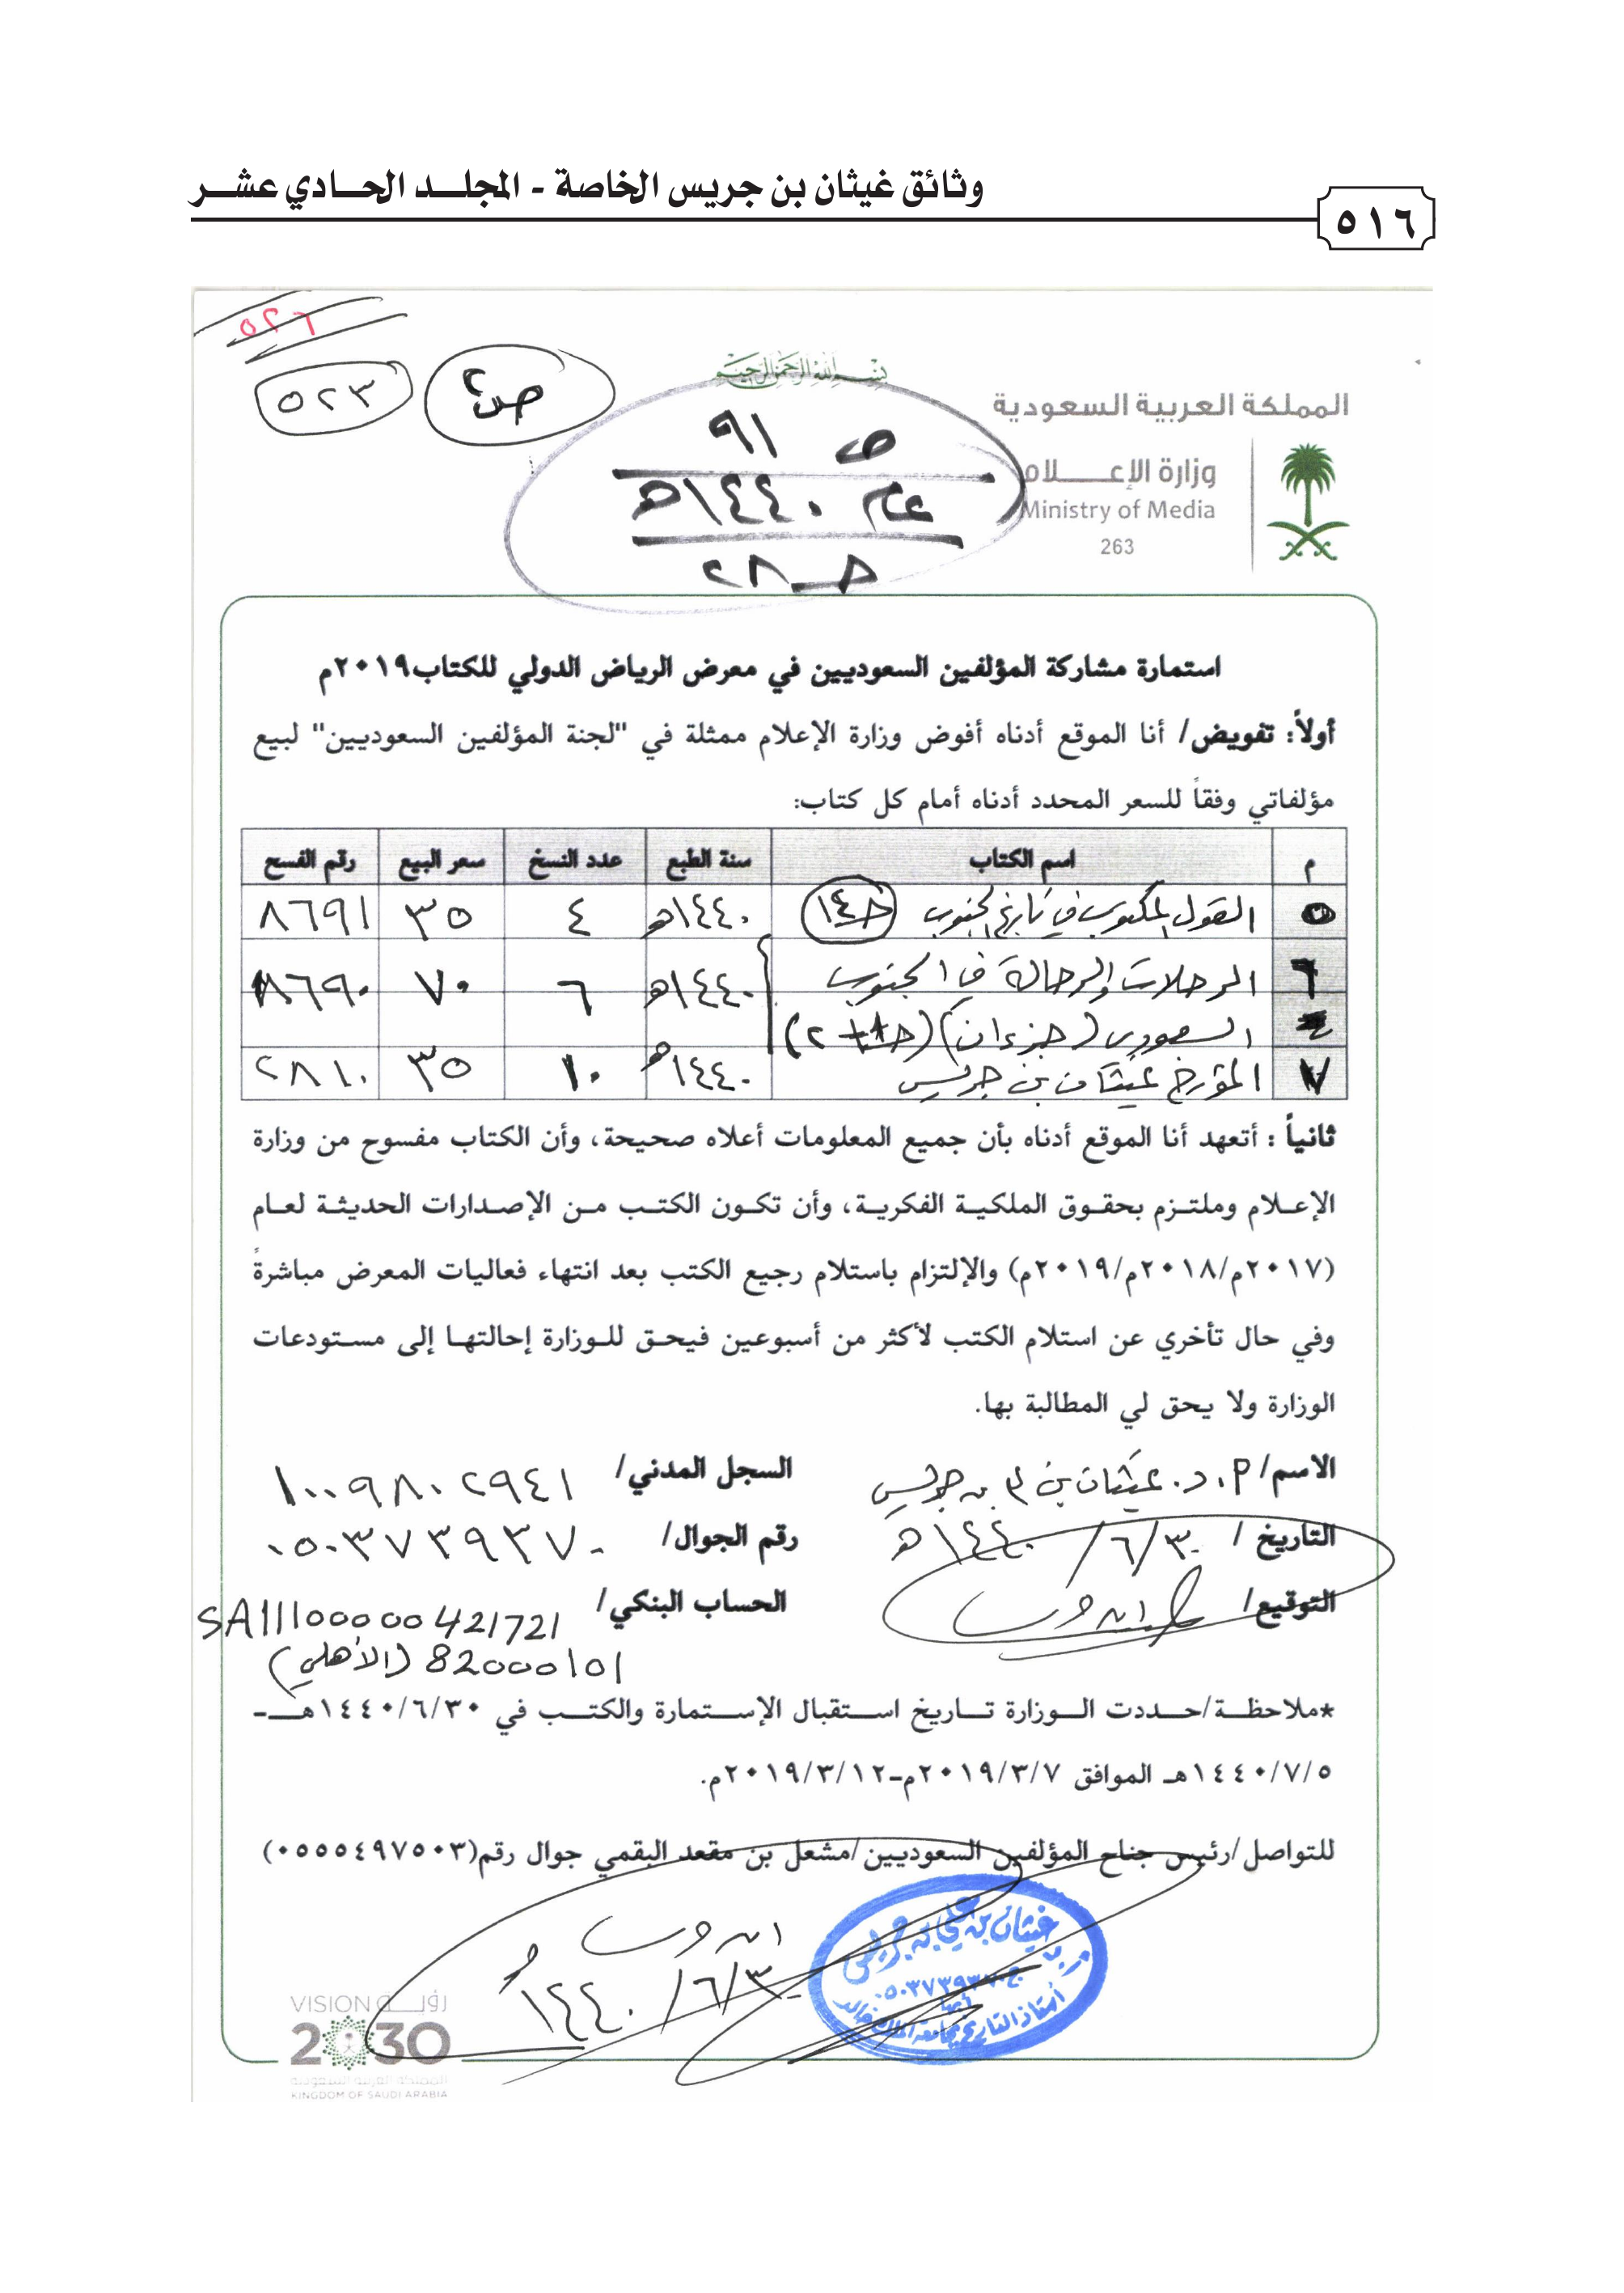 وثائق غيثان بن جريس الخاصة - المجلد الحادي عشر
٥١٦
٥٢٦
٥٢٣
ص٢
بسم الله الرحمن الرحيم
ص ٩١
عام ١٤٤٠هـ
حـ ٢٨
المملكة العربية السعودية
وزارة الإعلام
Ministry of Media
263
استمارة مشاركة المؤلفين السعوديين في معرض الرياض الدولي للكتاب٢٠١٩م
أولاً: تفويض/ أنا الموقع أدناه أفوض وزارة الإعلام ممثلة في "لجنة المؤلفين السعوديين" لبيع
مؤلفاتي وفقاً للسعر المحدد أدناه أمام كل كتاب:
م اسم الكتاب سنة الطبع عدد النسخ سعر البيع رقم الفسح
٥ القول المكتوب في تاريخ الجنوب (حـ١٤) ١٤٤٠هـ ٤ ٣٥ ٨٦٩١
٦ الرحلات والرحالة في الجنوب ١٤٤٠هـ ٦ ٧٠ ٨٦٩٠
السعودي (جزءان) (حـ١+٢)
٧ المؤرخ غيثان بن جريس ١٤٤٠هـ ١٠ ٣٥ ٢٨١٠
ثانياً : أتعهد أنا الموقع أدناه بأن جميع المعلومات أعلاه صحيحة، وأن الكتاب مفسوح من وزارة
الإعلام وملتزم بحقوق الملكية الفكرية، وأن تكون الكتب من الإصدارات الحديثة لعام
(٢٠١٧م/٢٠١٨م/٢٠١٩م) والإلتزام باستلام رجيع الكتب بعد انتهاء فعاليات المعرض مباشرةً
وفي حال تأخري عن استلام الكتب لأكثر من أسبوعين فيحق للوزارة إحالتها إلى مستودعات
الوزارة ولا يحق لي المطالبة بها.
الاسم/ أ. د. غيثان بن علي بن جريس السجل المدني/ ١٠٠٩٨٠٢٩٤١
التاريخ / ١٤٤٠/٦/٣٠هـ رقم الجوال/ ٠٥٠٣٧٣٩٣٧٠
التوقيع/ الحساب البنكي/ SA1110000042172
82000101 (الأهلي)
*ملاحظة/حددت الوزارة تاريخ استقبال الإستمارة والكتب في ١٤٤٠/٦/٣٠هـ-
١٤٤٠/٧/٥هـ الموافق ٢٠١٩/٣/٧م-٢٠١٩/٣/١٢م.
للتواصل/رئيس جناح المؤلفين السعوديين/مشعل بن مقعد البقمي جوال رقم(٠٥٥٥٤٩٧٥٠٣)
أ.د غيثان بن علي بن جريس
ج ٠٥٠٣٧٣٩٣٧٠
أبها
أستاذ التاريخ بجامعة الملك خالد
١٤٤٠/٦/٣٠هـ
VISION رؤية
2030
المملكة العربية السعودية
KINGDOM OF SAUDI ARABIA